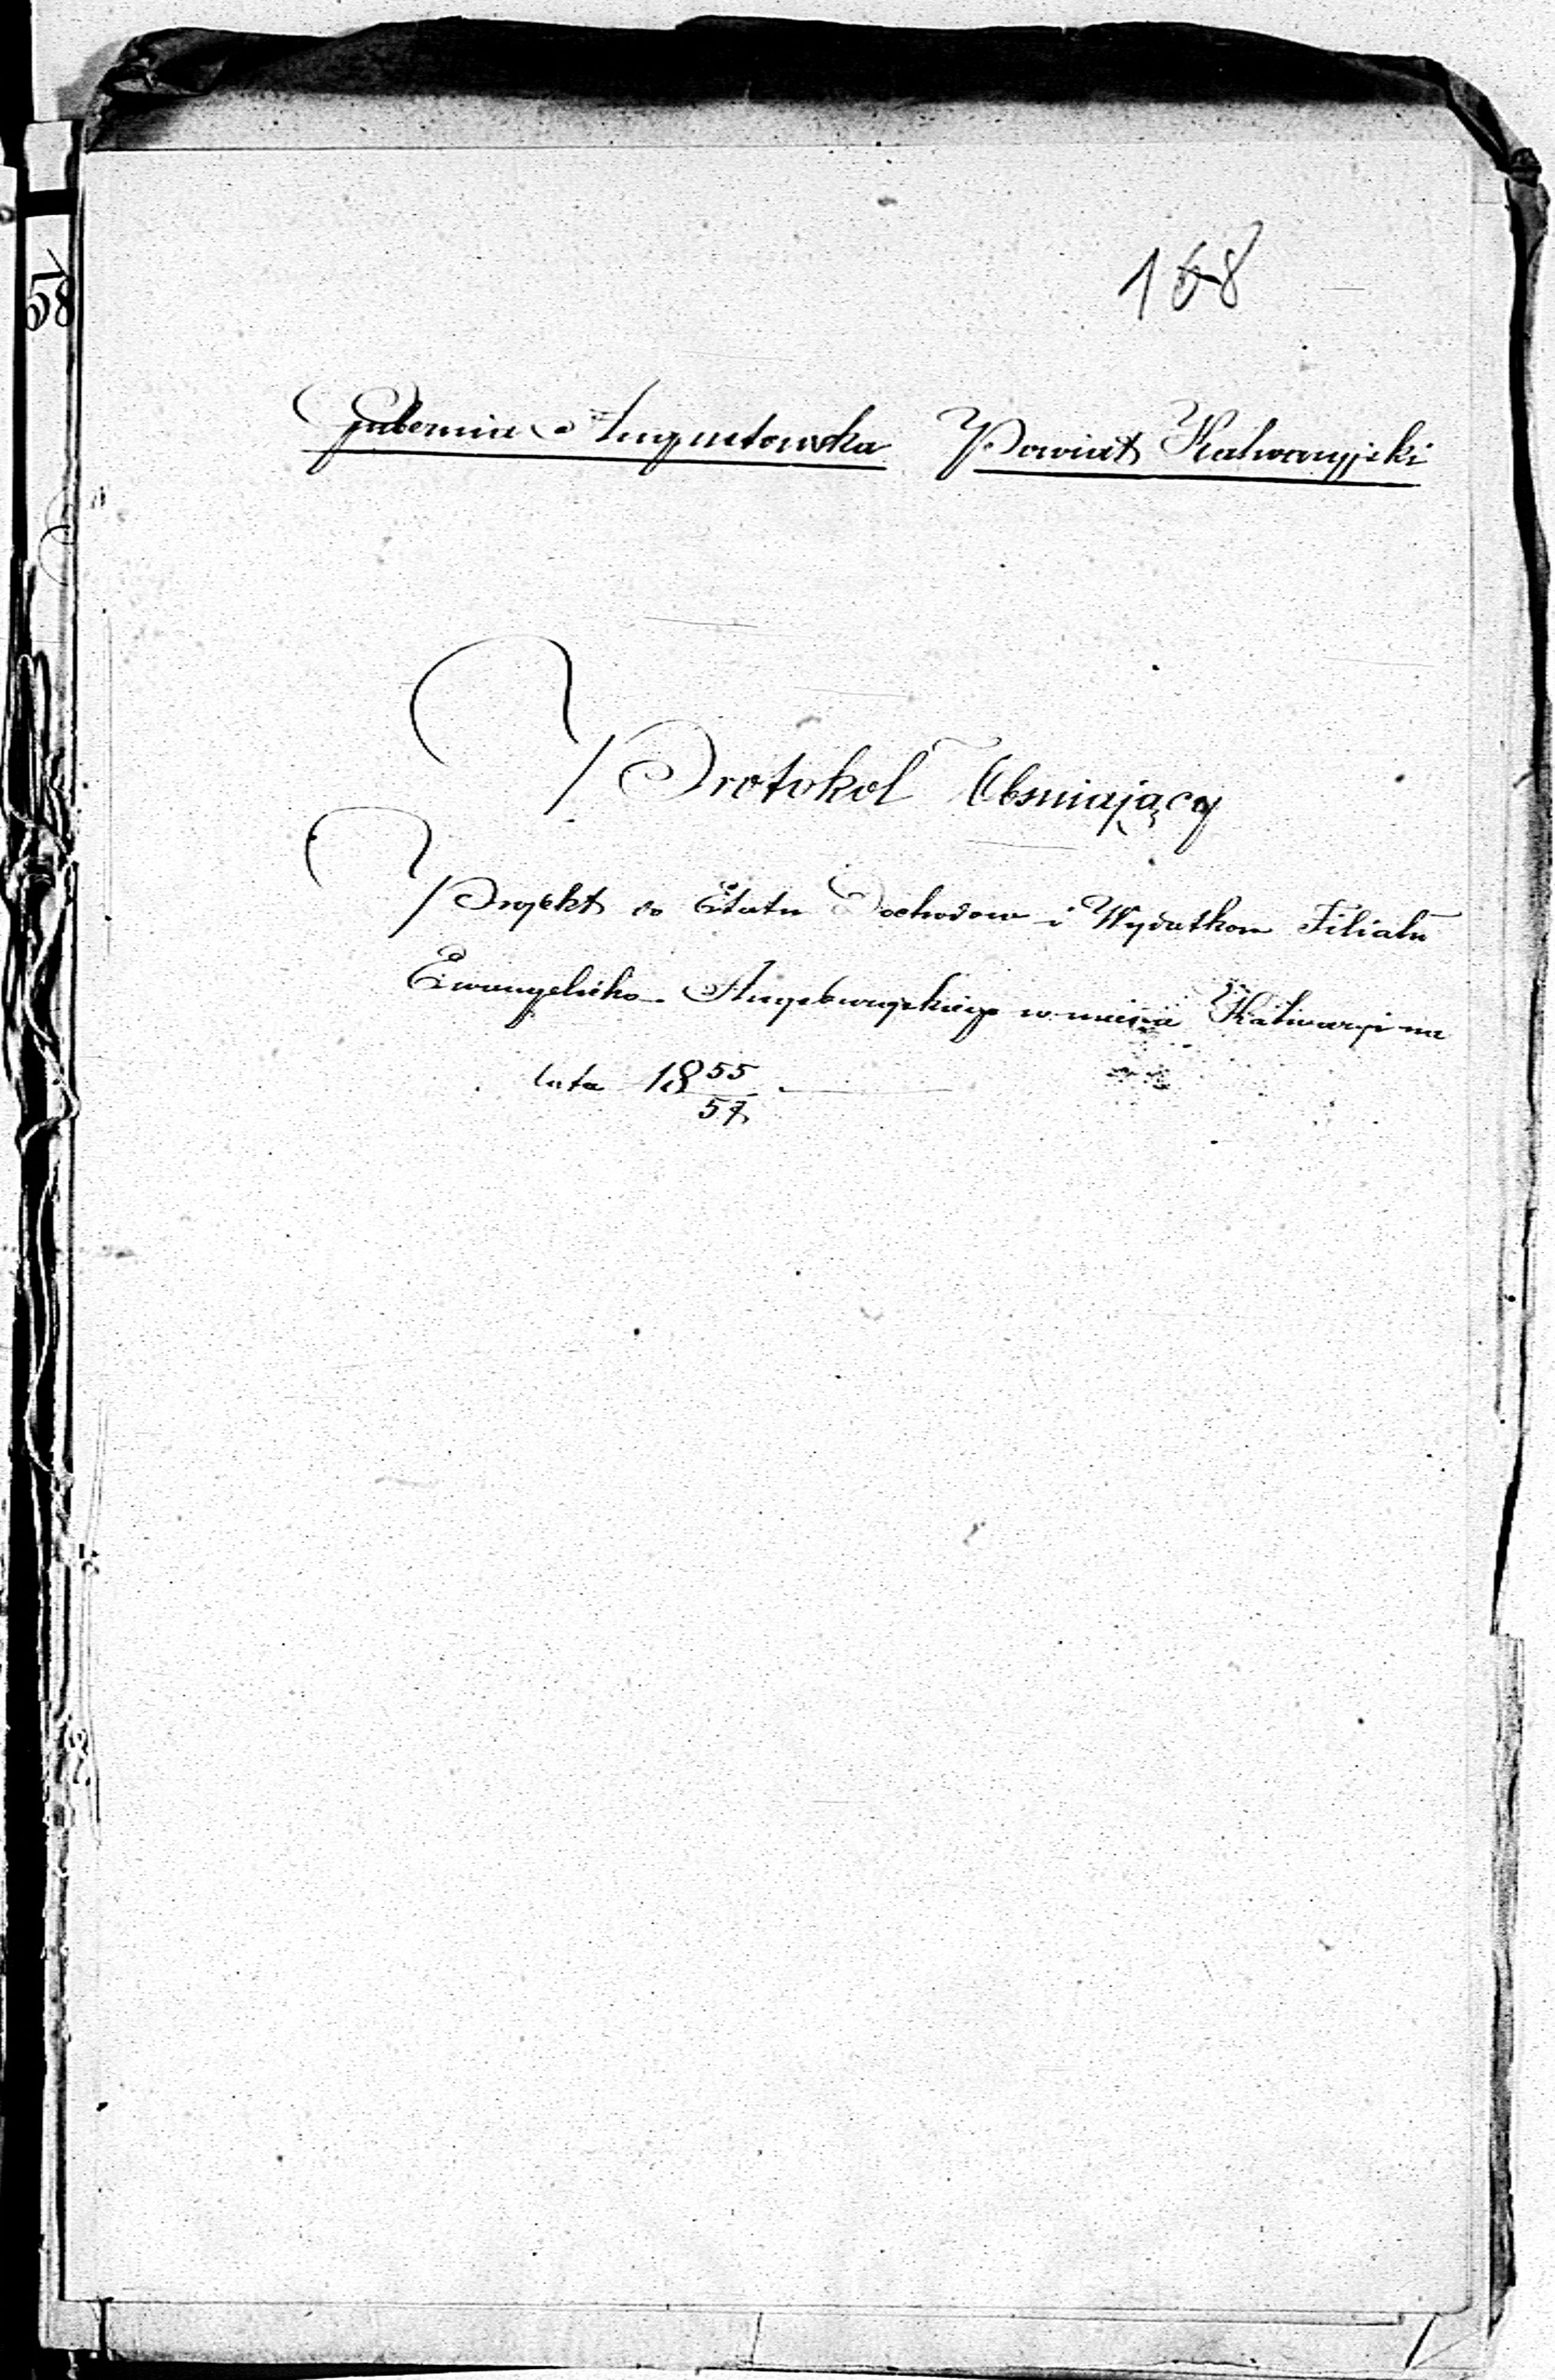 168
58
Gubernia Augustowska Powiat Kalwaryjski
Protokol Obsniający
Projekt do Etatu Dochodow i Wydatkow Filiału
Ewangelicko-Augsburgskiego w mieście Kalwaryi na
lata 18 55
57